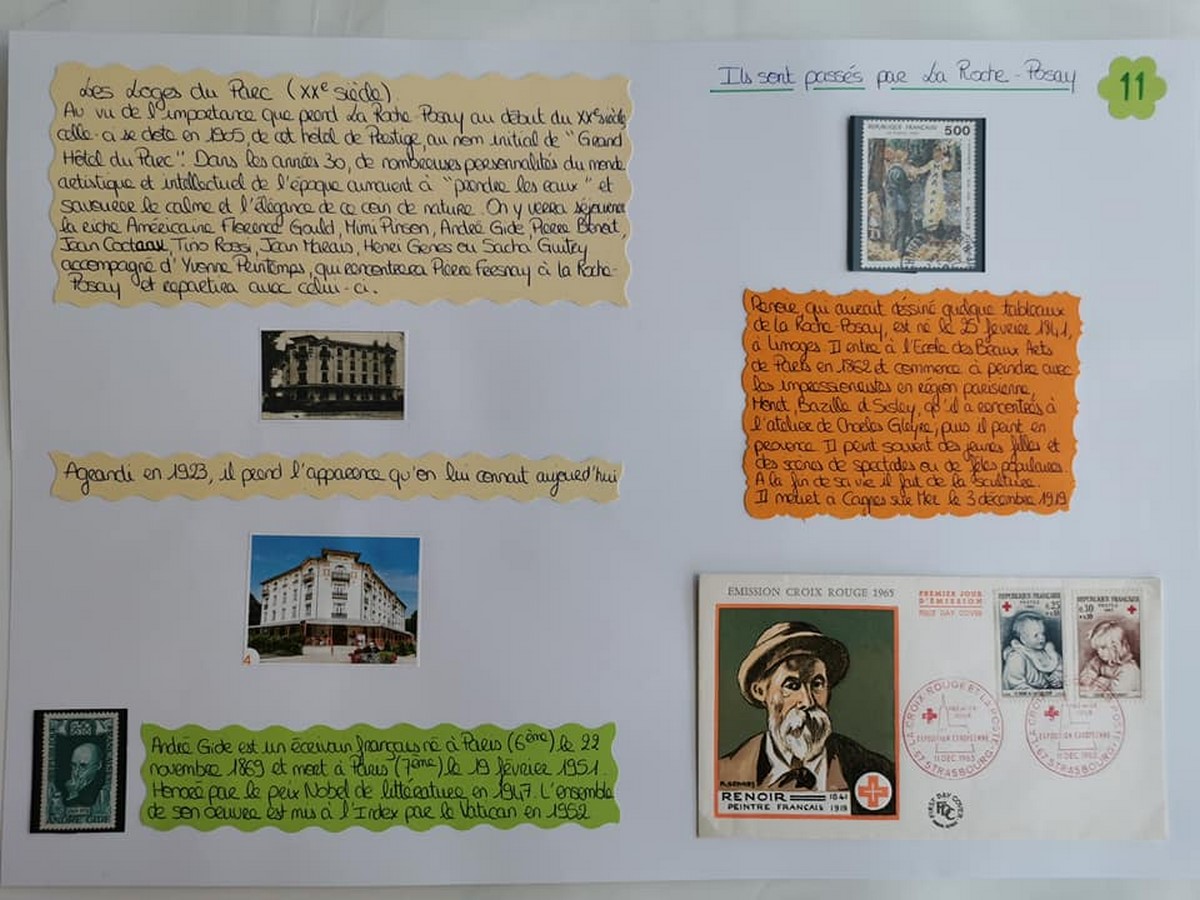 Les Loges du Parc (XXe siècle).
Au vu de l'importance que prend La Roche-Posay au début du XXe siècle
celle-ci se dote en 1905, de cet hôtel de Prestige, au nom initial de "Grand
Hôtel du Parc". Dans les années 30, de nombreuses personnalités du monde
artistique et intellectuel de l'époque aimaient à "prendre les eaux" et
savourer le calme et l'élégance de ce coin de nature. On y verra séjourner
la riche Américaine Florence Gould, Mimi Pinson, André Gide, Pierre Benoit,
Jean Coctaux, Tino Rossi, Jean Marais, Henri Genes ou Sacha Guitry
accompagné d'Yvonne Printemps, qui rencontrera Pierre Fresnay à la Roche-
Posay et repartira avec celui-ci.
Agrandi en 1923, il prend l'apparence qu'on lui connait aujourd'hui
4
ANDRÉ GIDE
André Gide est un écrivain français né à Paris (6ème) le 22
novembre 1869 et mort à Paris (7ème) le 19 février 1951.
Honoré par le prix Nobel de littérature en 1947. L'ensemble
de son oeuvre est mis à l'Index par le Vatican en 1952
Ils sont passés par La Roche-Posay
11
REPUBLIQUE FRANÇAISE 500
Renoir qui aurait déssiné quelque tableaux
de la Roche-Posay, est né le 25 février 1841,
à Limoges. Il entre à l'Ecole des Beaux Arts
de Paris en 1862 et commence à peindre avec
les impressionistes en région parisienne,
Monet, Bazille et Sisley, qu'il a rencontrés à
l'atelier de Charles Gleyre; puis il peint en
provence. Il peint souvent des jeunes filles et
des scènes de spectacles ou de fêtes populaires.
A la fin de sa vie il fait de la sculture.
Il meurt à Cagnes sur Mer le 3 décembre 1919
EMISSION CROIX ROUGE 1965
PREMIER JOUR
D'EMISSION
FIRST DAY COVER
REPUBLIQUE FRANÇAISE
POSTES
0,25
REPUBLIQUE FRANÇAISE
POSTES
0,30
LA CROIX-ROUGE ET LA POSTE
PREMIER
JOUR
EXPOSITION EUROPÉENNE
11 DEC. 1965
67 STRASBOURG
LA CROIX-ROUGE ET LA POSTE
PREMIER
JOUR
EXPOSITION EUROPÉENNE
11 DEC. 1965
67 STRASBOURG
RENOIR 1841
PEINTRE FRANÇAIS 1919
FIRST DAY COVER
FDC